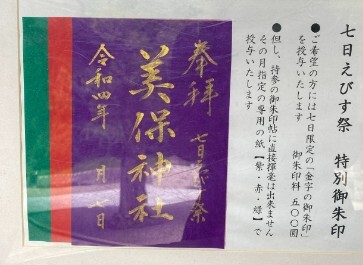 七日えびす祭 特別御朱印
●ご希望の方には七日限定の「金字の御朱印」
を授与いたします
御朱印料 五〇〇圓
●但し、持参の御朱印帖に直接揮毫は出来ません
その月指定の専用の紙【紫・赤・緑】で
授与いたします
奉拝 七日えびす祭
美保神社
令和四年 月 七日